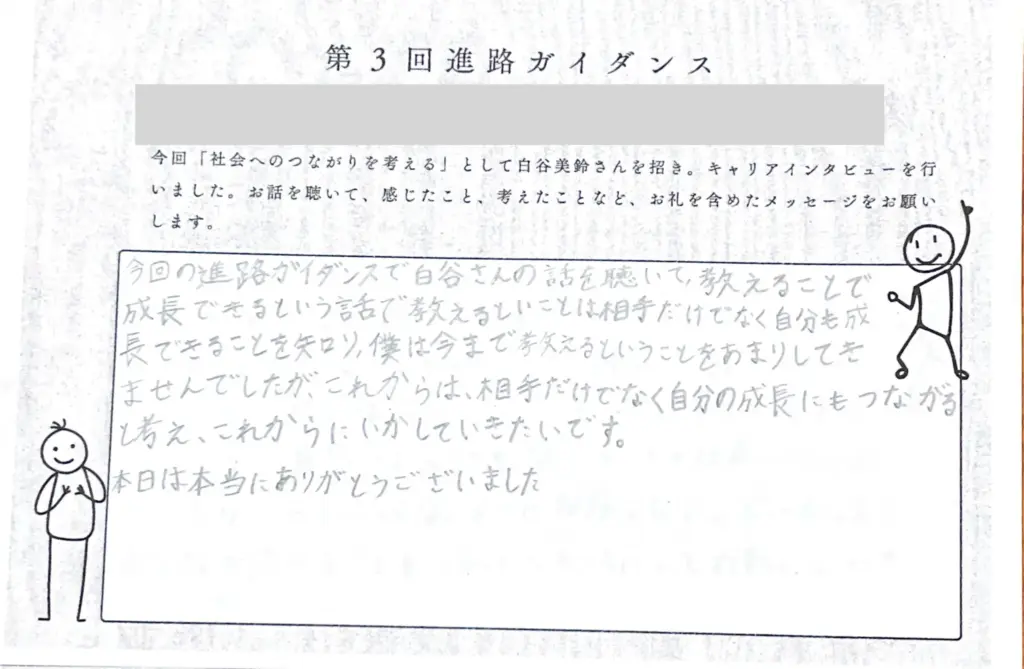 第3回進路ガイダンス
今回「社会へのつながりを考える」として白谷美鈴さんを招き。キャリアインタビューを行
いました。お話を聴いて、感じたこと、考えたことなど、お礼を含めたメッセージをお願い
します。
今回の進路ガイダンスで白谷さんの話を聴いて、教えることで
成長できるという話で教えるといことは相手だけでなく自分も成
長できることを知り、僕は今まで教えるということをあまりしてき
ませんでしたが、これからは、相手だけでなく自分の成長にもつながる
と考え、これからにいかしていきたいです。
本日は本当にありがとうございました